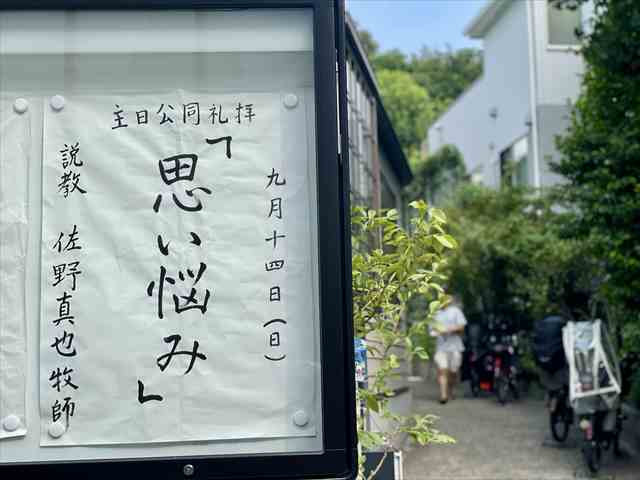 主日公同礼拝
九月十四日(日)
「思い悩み」
説教 佐野真也牧師